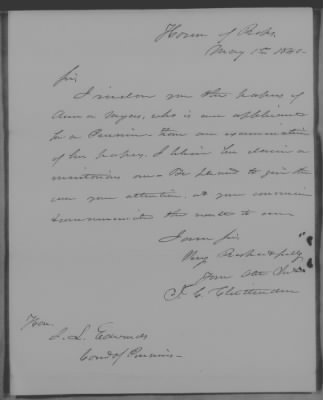 House of Reps.
May 1st 1840
Sir
I enclose you the papers of
Anna Myers, who is an applicant
for a Pension - from an examination
of her papers, I believe her claim a
meritorious one - Be pleased to give the
case your attention, at your convenience
& communicate the result to me
I am Sir
Very Respectfully
Your Obt Svt
T. C. Chittenden
Hon.
J. L. Edwards
Com. of Pensions -